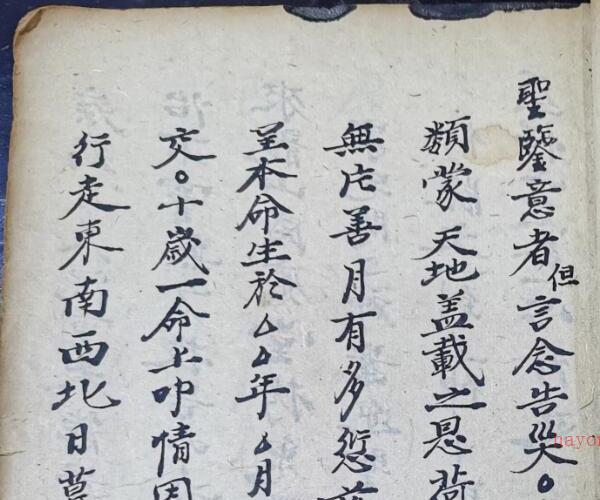 聖鑒意者但言念告災〇
類蒙天地盖載之恩荷
無片善月有多愆
呈本命生於厶厶年厶月
交〇十歲一命上叩情因
行走東南西北日暮
hayo